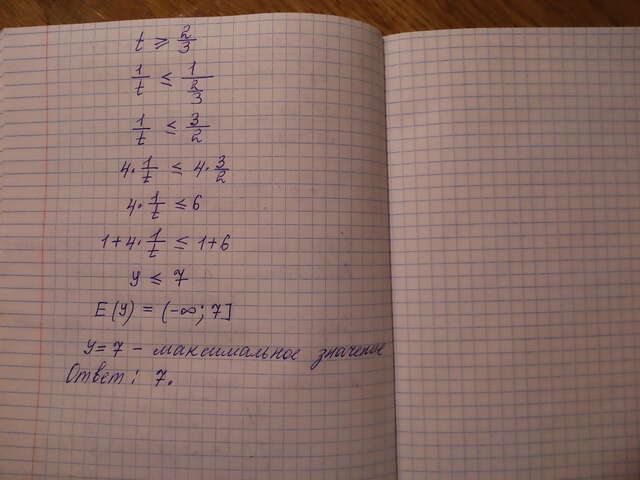 t ≥ 2/3
1/t ≤ 1/(2/3)
1/t ≤ 3/2
4·1/t ≤ 4·3/2
4·1/t ≤ 6
1+4·1/t ≤ 1+6
y ≤ 7
E(y) = (-∞; 7]
y=7 - максимальное значение
Ответ: 7.